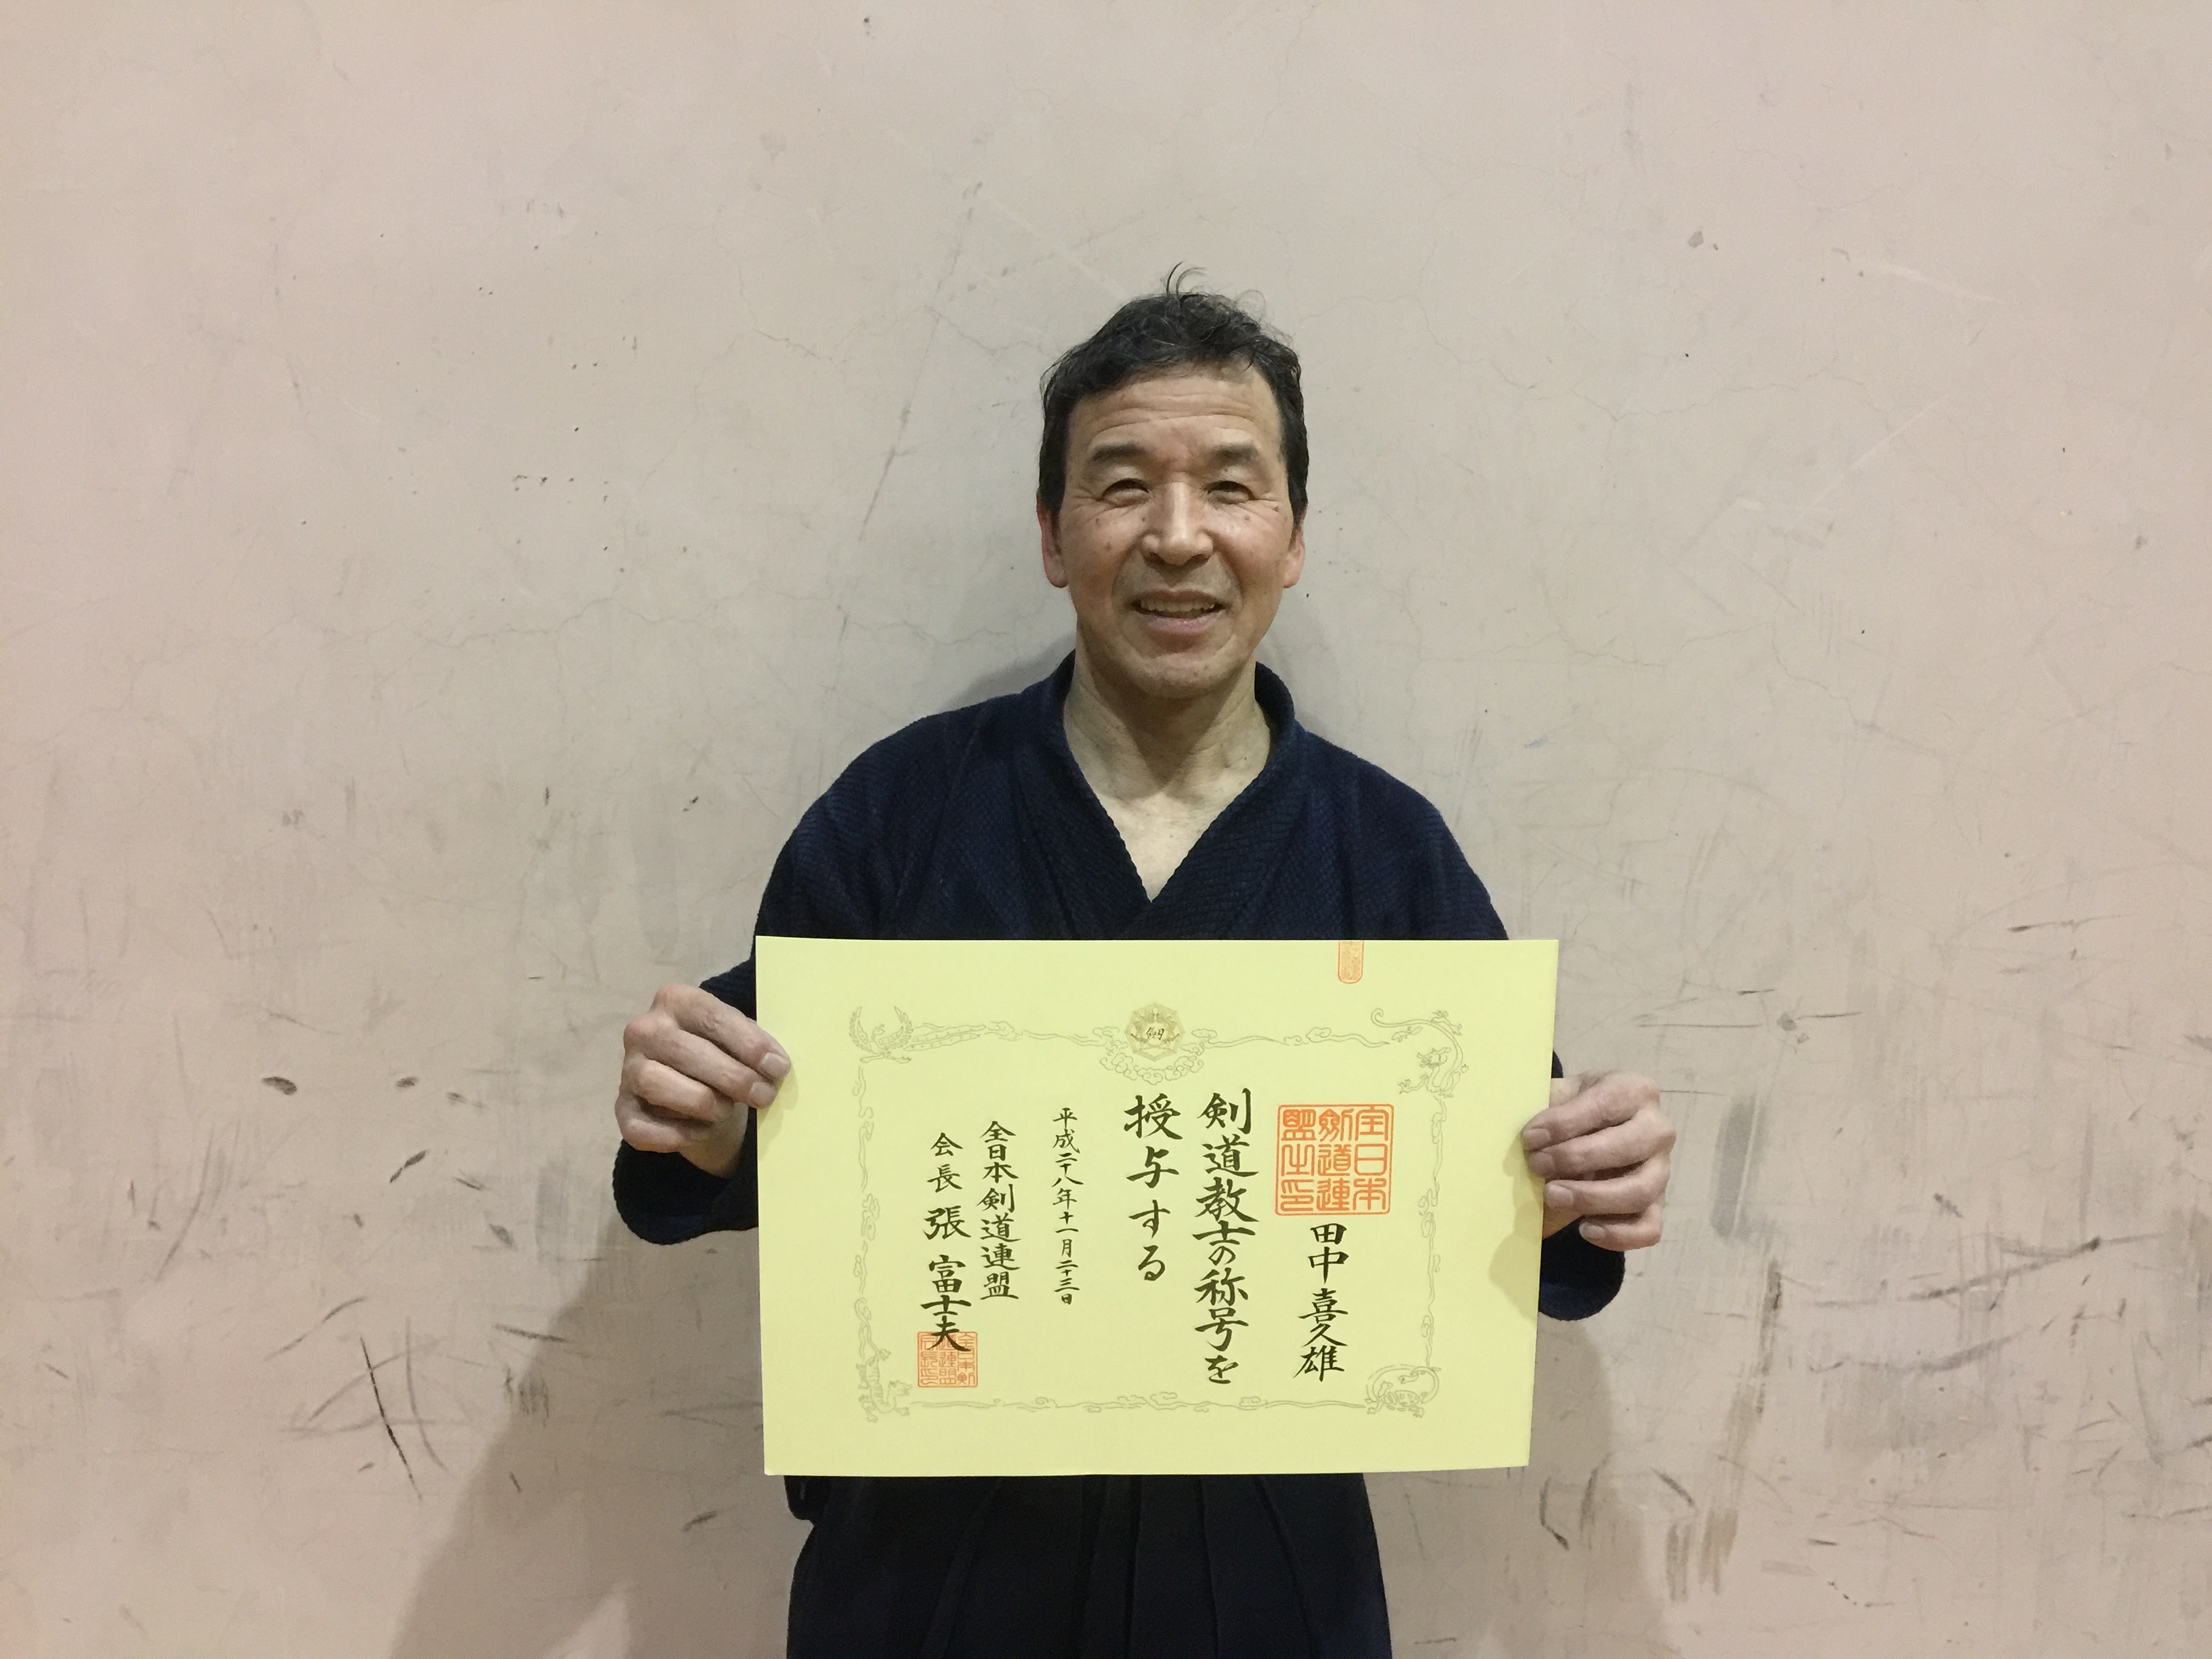 田中喜久雄
剣道教士の称号を
授与する
平成二十八年十一月二十三日
全日本剣道連盟
会長 張 富士夫
全日本
剣道連
盟之印